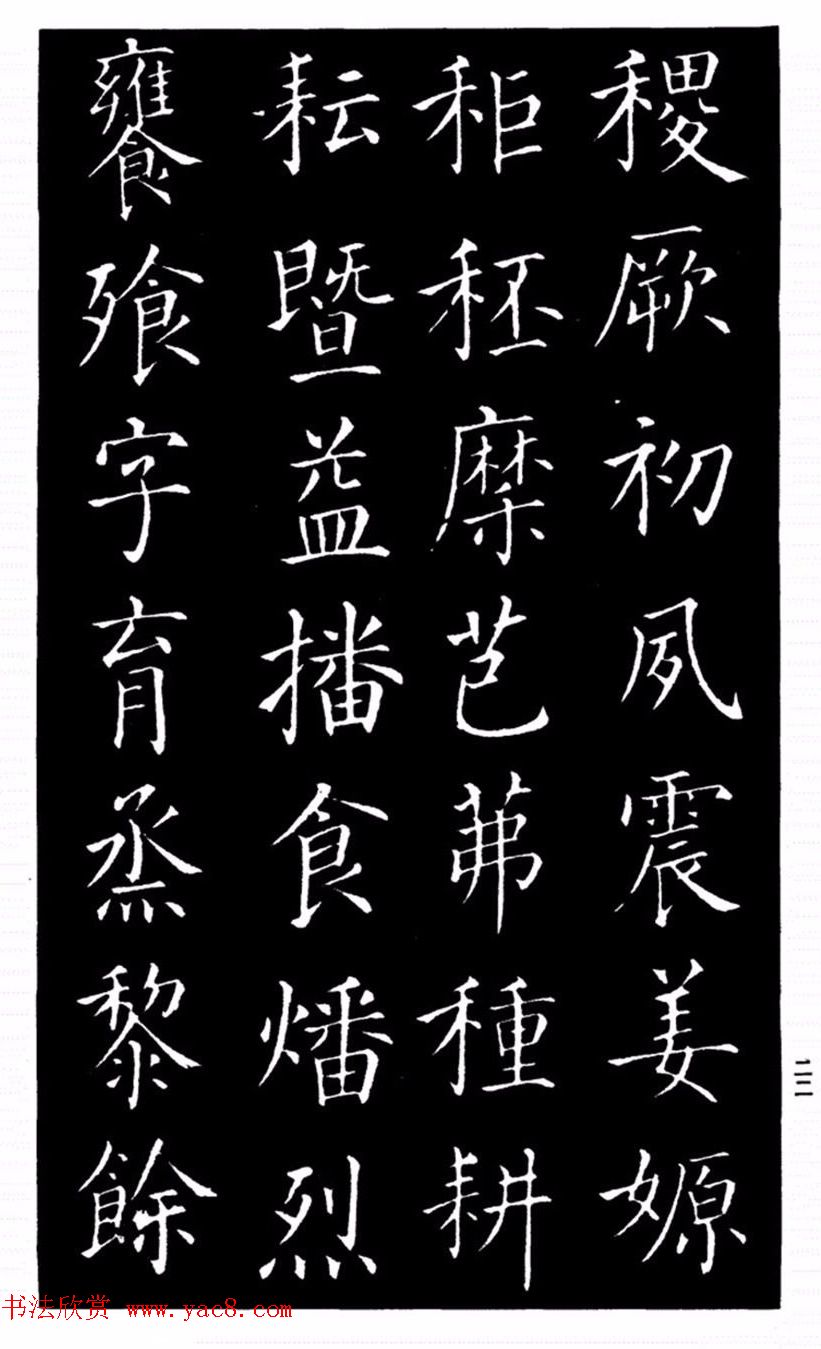 稷厥初夙震姜嫄
秬秠穈芑茀種耕
耘暨益播食燔烈
饔飧字育烝黎餘
二二
书法欣赏 www.yac8.com